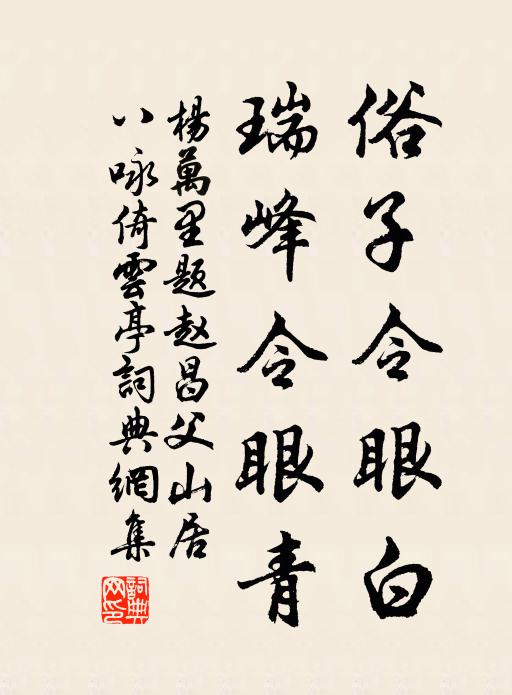 俗子令眼白
瑞峰令眼青
楊萬里题赵昌父山居
八咏倚雲亭詞典網集
詞典網印